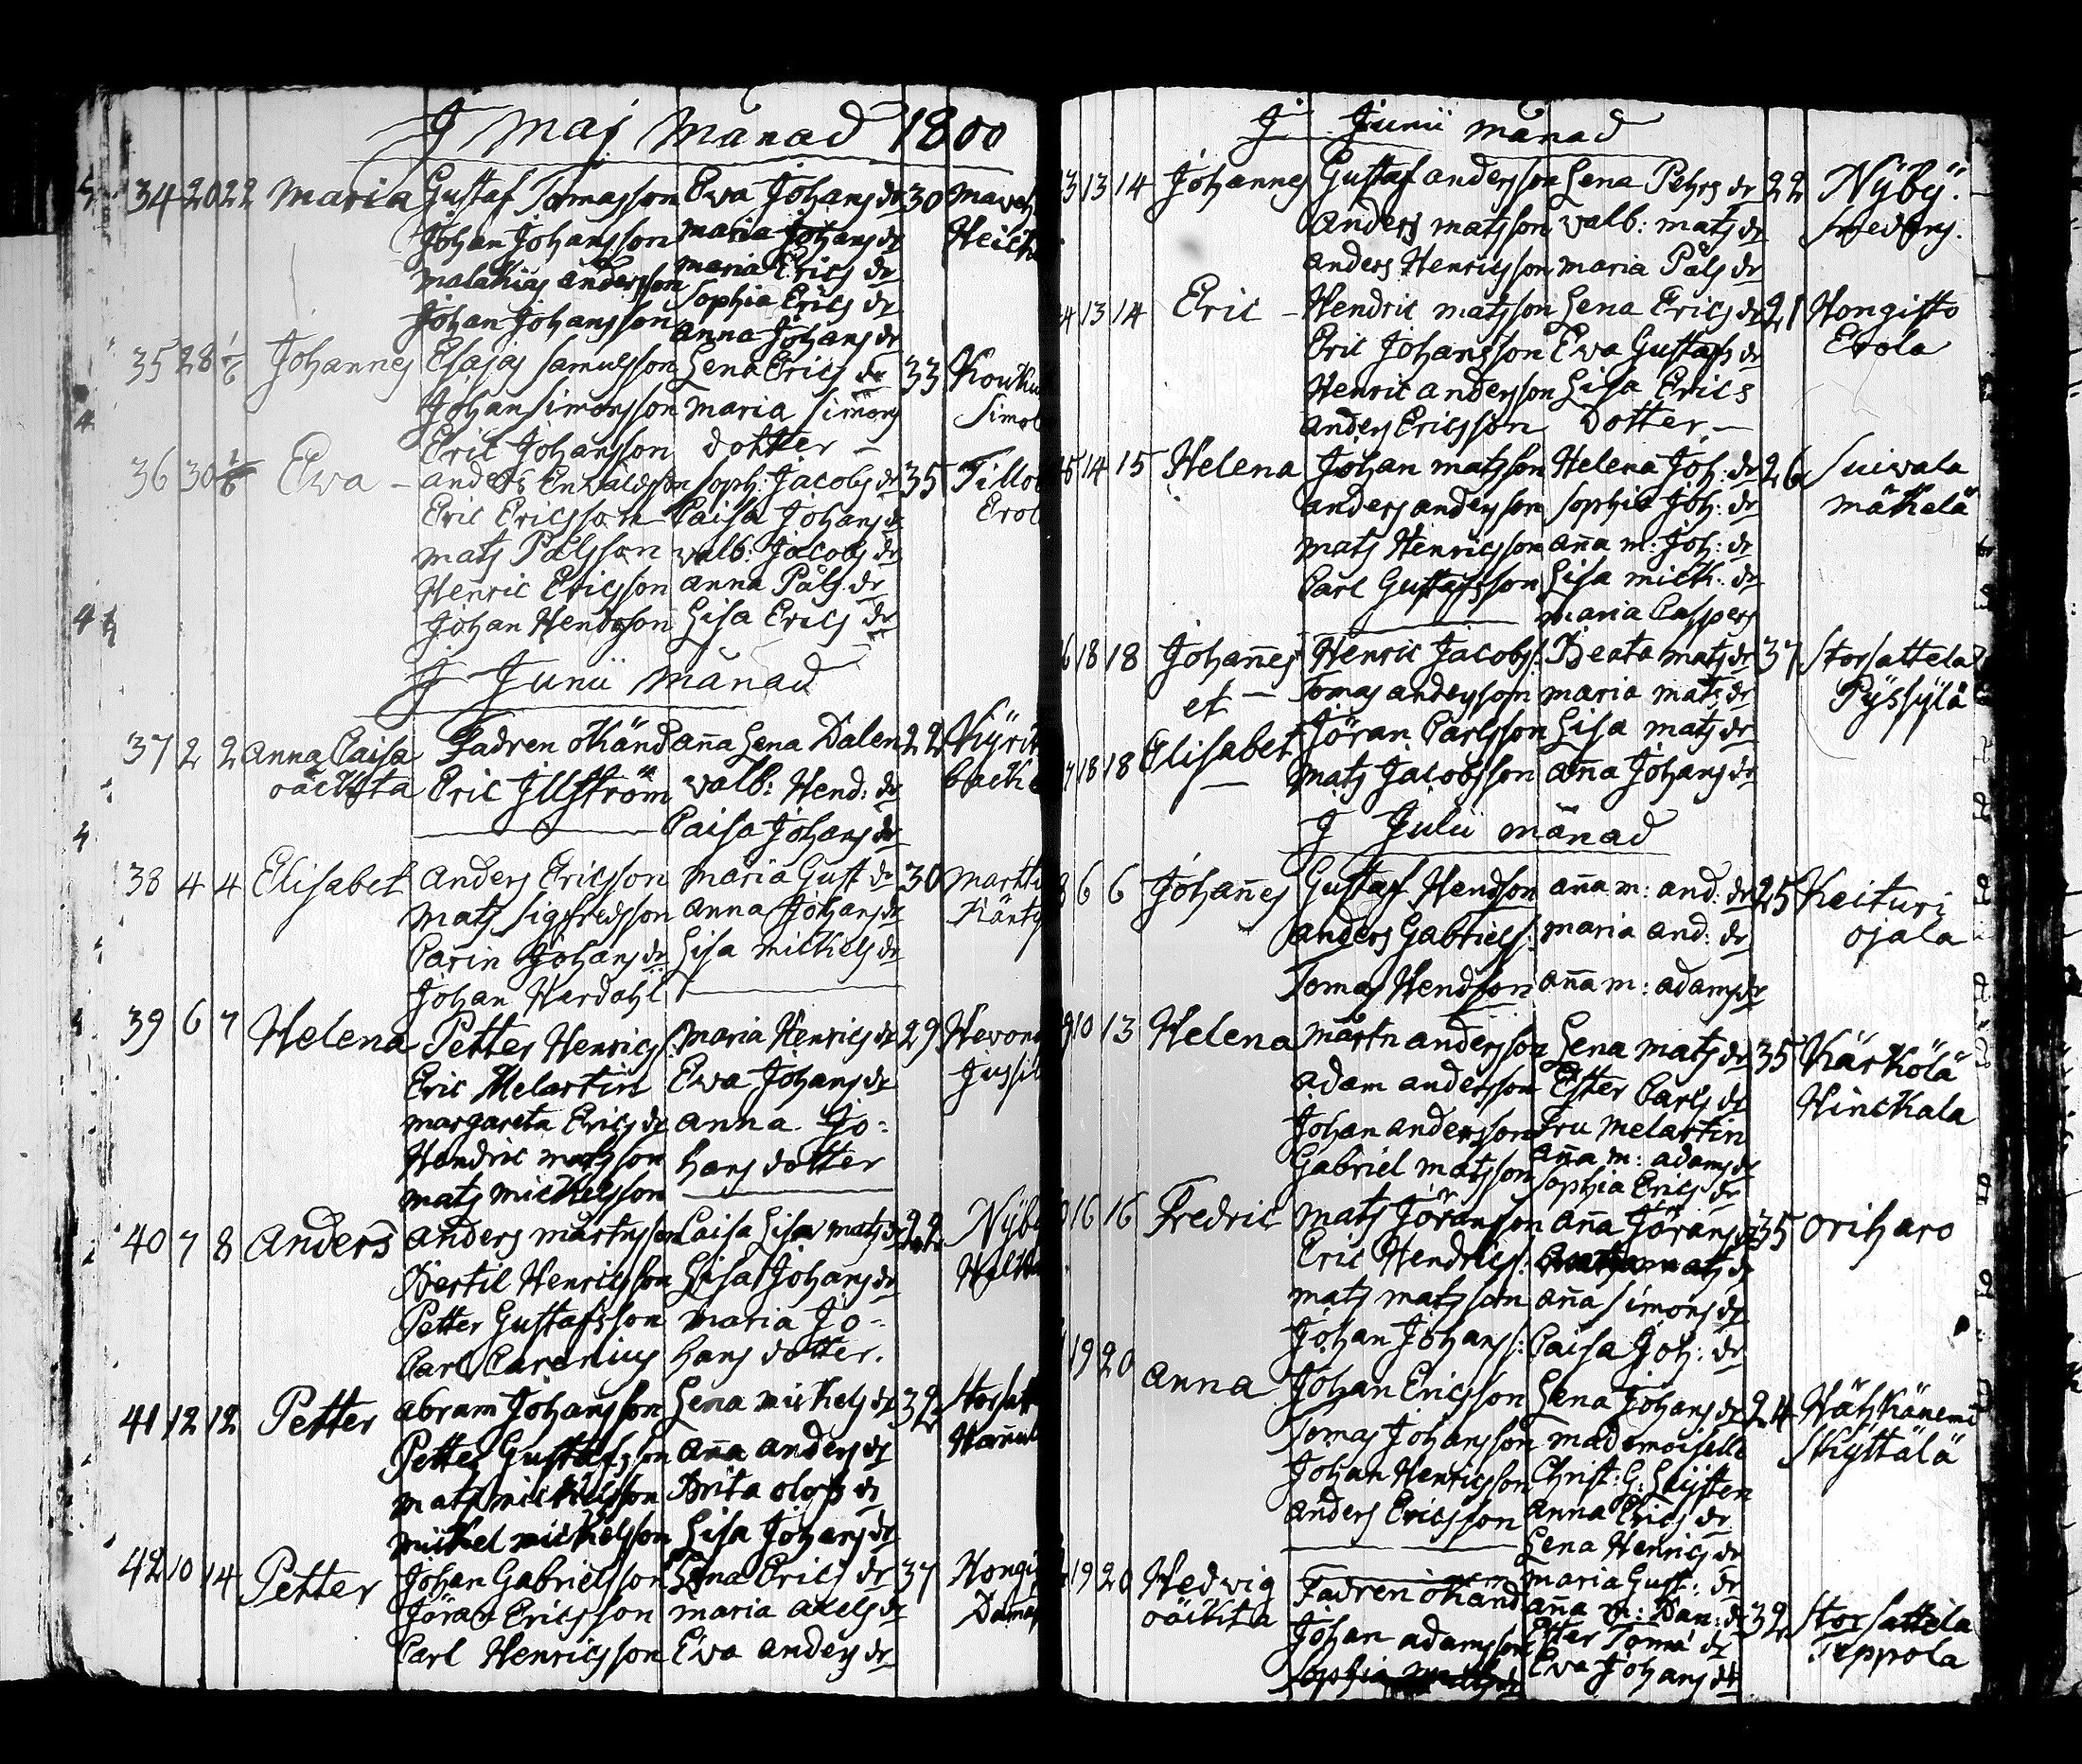 J Maj Månad 1800
34 20 22 Maria Gustaf Tomasson Ewa Johans dr 30
Johan Johansson Maria Johans dr
Malakias Andersson Maria Erics dr
Johan Johansson Sophia Erics dr
Anna Johans dr
35 28 1/6 Johannes Esajas Samulsson Lena Erics dr 33
Johan Simonsson Maria Simons
Eric Johansson dotter
36 30 Ewa Anders Enwaldsson Soph: Jacobs dr 35
Eric Ericsson Caisa Johans dr
Mats Pålsson Walb: Jacobs dr
Henric Ericsson Anna Påls dr
Johan Hendrsson Lisa Erics dr
J Junii Månad
37 2 2 Anna Caisa Fadren okänd Aña Lena Dalen 22
oäckta Eric Illström Walb: Hend: dr
Caisa Johans dr
38 4 4 Elisabet Anders Ericsson Maria Gust dr 30
Mats Sigfredsson Anna Johans dr
Carin Johans dr Lisa Mickels dr
Johan Hardahl
39 6 7 Helena Petter Henrics: Maria Henrics dr 29
Eric Melartin Ewa Johans dr
Margareta Erics dr Anna Jo=
Hendric Matsson hans dotter
Mats Mickelsson
40 7 8 Anders Anders Mårtnsson Caisa Lisa Mats dr 22
Bertil Henricsson Lisa Johans dr
Petter Gustafsson Maria Jo=
Carl Carenius hans dotter.
41 12 12 Petter Abram Johansson Lena Mickels dr 32
Petter Gustafsson Aña Anders dr
Mats Mickelsson Brita Olofs dr
Mickel Mickelsson Lisa Johans dr
42 10 14 Petter Johan Gabrielsson Lena Erics dr 37
Jöran Ericsson Maria Axels dr
Carl Henricsson Ewa Anders dr
J Junii Månad
13 14 Johannes Gustaf Andersson Lena Pehrs dr 22 Nÿbÿ.
Anders Matsson Walb: Mats dr
Anders Henricsson Maria Påls dr
13 14 Eric Hendric Matsson Lena Erics dr 21 Hongisto
Eric Johansson Ewa Gustafs dr Erola
Henric Andersson Lisa Erics
Anders Ericsson Dotter
14 15 Helena Johan Matsson Helena Joh: dr 26 Suiwala
Anders Andersson Sophia Joh: dr Mäkelä
Mats Henricsson Aña M: Joh: dr
Carl Gustafsson Lisa Mick: dr
Maria Caspers
18 18 Johañes Henric Jacobs: Beata Mats dr 37 Storsattela
et Tomas Andersson Maria Mats dr Pÿssÿlä
Jöran Carlsson Lisa Mats dr
18 18 Elisabet Mats Jacobsson Aña Johans dr
J Julii Månad
6 6 Johañes Gustaf Hendson Aña M: And: dr 25 Keituri
Anders Gabriels: Maria And: dr Ojala
Tomas Hendson Aña M: Adams dr
10 13 Helena Mårtn Andersson Lena Mats dr 35 Kärkölä
Adam Andersson Ester Carls dr Hinckala
Johan Andersson Fru Melartin
Gabriel Matsson Aña M: Adams dr
Sophia Erics dr
16 16 Fredric Mats Jöransson Aña Jörans dr 35 Oriharo
Eric Hendrics: Mats dr
Mats Matsson Aña Simons dr
Johan Johans: Caisa Joh: dr
19 20 Anna Johan Ericsson Lena Johans dr 24 Hähkänemi
Tomas Johansson Mademoiselle Skÿttälä
Johan Henricsson Christ: G:
Anders Ericsson Anna Erics dr
Lena Henrics dr
Maria Gust: dr
19 20 Hedwig Fadren okänd Aña M: Dan: dr 32 Storsattela
oäckta Johan Adamsson Ester Toma dr Teppola
Sophia Ewa Johans dr